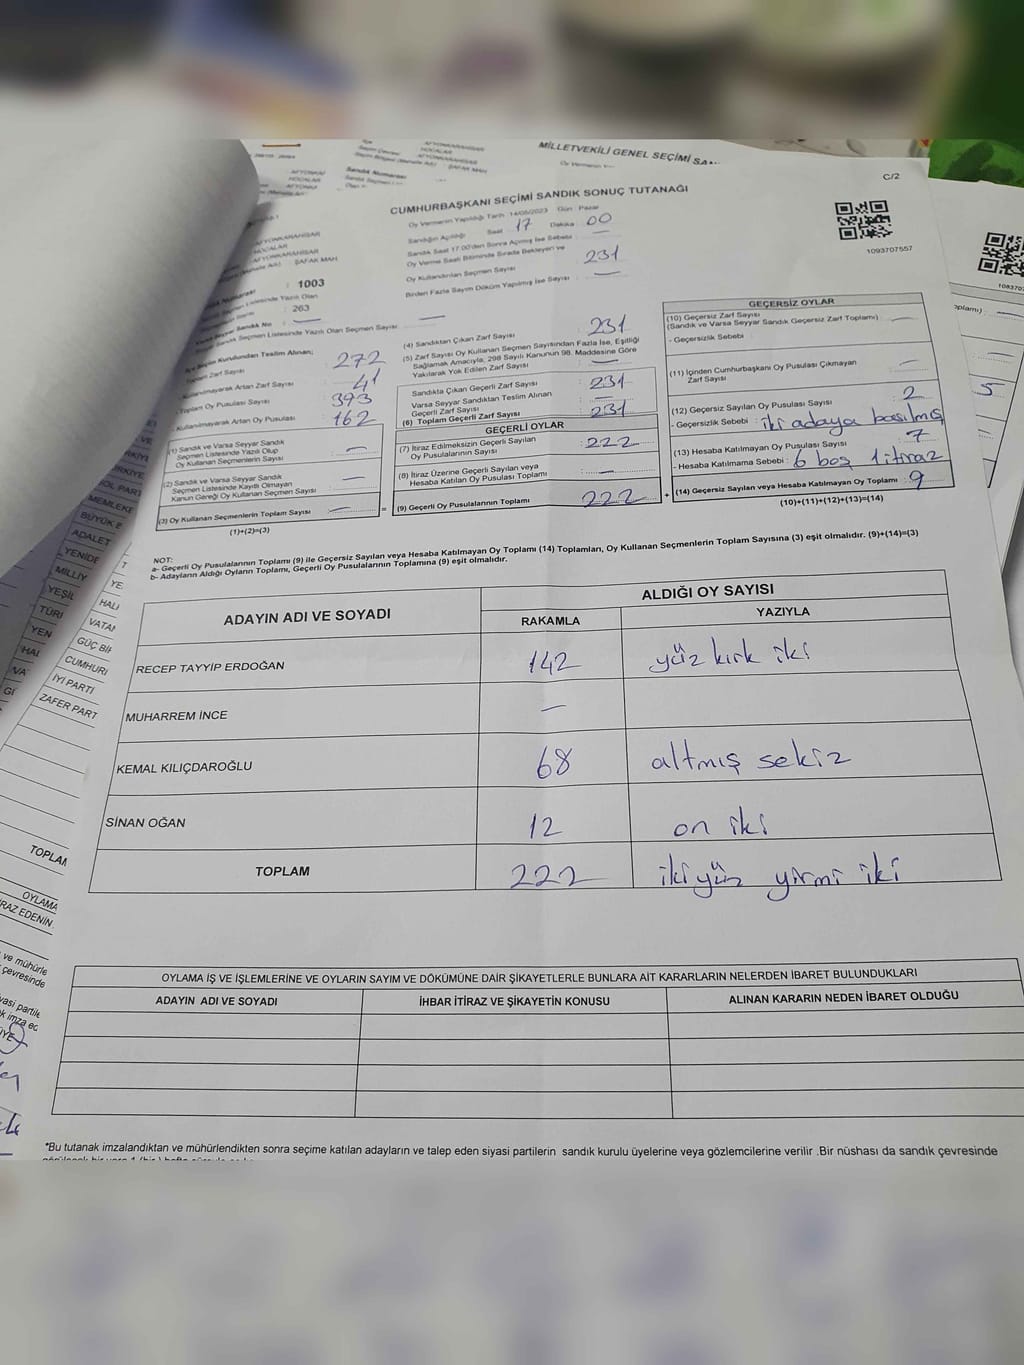 MİLLETVEKİLİ GENEL SEÇİMİ
C/2
CUMHURBAŞKANI SEÇİMİ SANDIK SONUÇ TUTANAĞI
Oy Vermenin Yapıldığı Tarih : 14/05/2023 Gün : Pazar
Sandığın Açıldığı Saat 17 Dakika 00
Sandık Saat 17:00'den Sonra Açılmış İse Sebebi : —
Oy Verme Saati Bitiminde Sırada Bekleyen ve
Oy Kullandırılan Seçmen Sayısı 231
Birden Fazla Sayım Döküm Yapılmış İse Sayısı : —
1093707557
AFYONKARAHİSAR
HOCALAR
AFYONKARAHİSAR
ŞAFAK MAH
: 1003
: 263
Listesinde Yazılı Olan Seçmen Sayısı : —
Kurulundan Teslim Alınan;
Zarf Sayısı : 272
Kullanılmayarak Artan Zarf Sayısı : 41
Toplam Oy Pusulası Sayısı : 393
Kullanılmayarak Artan Oy Pusulası : 162
(1) Sandık ve Varsa Seyyar Sandık
Seçmen Listesinde Yazılı Olup
Oy Kullanan Seçmenlerin Sayısı : —
(2) Sandık ve Varsa Seyyar Sandık
Seçmen Listesinde Kayıtlı Olmayan
Kanun Gereği Oy Kullanan Seçmen Sayısı : —
(3) Oy Kullanan Seçmenlerin Toplam Sayısı : —
(1)+(2)=(3)
(4) Sandıktan Çıkan Zarf Sayısı : 231
(5) Zarf Sayısı Oy Kullanan Seçmen Sayısından Fazla İse, Eşitliği
Sağlamak Amacıyla, 298 Sayılı Kanunun 98. Maddesine Göre
Yakılarak Yok Edilen Zarf Sayısı : —
Sandıkta Çıkan Geçerli Zarf Sayısı : 231
Varsa Seyyar Sandıktan Teslim Alınan
Geçerli Zarf Sayısı : —
(6) Toplam Geçerli Zarf Sayısı : 231
GEÇERLİ OYLAR
(7) İtiraz Edilmeksizin Geçerli Sayılan
Oy Pusulalarının Sayısı : 222
(8) İtiraz Üzerine Geçerli Sayılan veya
Hesaba Katılan Oy Pusulası Toplamı : —
= (9) Geçerli Oy Pusulalarının Toplamı : 222 +
GEÇERSİZ OYLAR
(10) Geçersiz Zarf Sayısı
(Sandık ve Varsa Seyyar Sandık Geçersiz Zarf Toplamı) : —
- Geçersizlik Sebebi :
(11) İçinden Cumhurbaşkanı Oy Pusulası Çıkmayan
Zarf Sayısı : —
(12) Geçersiz Sayılan Oy Pusulası Sayısı : 2
- Geçersizlik Sebebi : iki adaya basılmış
(13) Hesaba Katılmayan Oy Pusulası Sayısı : 7
- Hesaba Katılmama Sebebi : 6 boş 1 itiraz
(14) Geçersiz Sayılan veya Hesaba Katılmayan Oy Toplamı : 9
(10)+(11)+(12)+(13)=(14)
NOT:
a- Geçerli Oy Pusulalarının Toplamı (9) ile Geçersiz Sayılan veya Hesaba Katılmayan Oy Toplamı (14) Toplamları, Oy Kullanan Seçmenlerin Toplam Sayısına (3) eşit olmalıdır. (9)+(14)=(3)
b- Adayların Aldığı Oyların Toplamı, Geçerli Oy Pusulalarının Toplamına (9) eşit olmalıdır.
ADAYIN ADI VE SOYADI
ALDIĞI OY SAYISI
RAKAMLA YAZIYLA
RECEP TAYYİP ERDOĞAN 142 yüz kırk iki
MUHARREM İNCE —
KEMAL KILIÇDAROĞLU 68 altmış sekiz
SİNAN OĞAN 12 on iki
TOPLAM 222 ikiyüz yirmi iki
OYLAMA İŞ VE İŞLEMLERİNE VE OYLARIN SAYIM VE DÖKÜMÜNE DAİR ŞİKAYETLERLE BUNLARA AİT KARARLARIN NELERDEN İBARET BULUNDUKLARI
ADAYIN ADI VE SOYADI İHBAR İTİRAZ VE ŞİKAYETİN KONUSU ALINAN KARARIN NEDEN İBARET OLDUĞU
*Bu tutanak imzalandıktan ve mühürlendikten sonra seçime katılan adayların ve talep eden siyasi partilerin sandık kurulu üyelerine veya gözlemcilerine verilir .Bir nüshası da sandık çevresinde